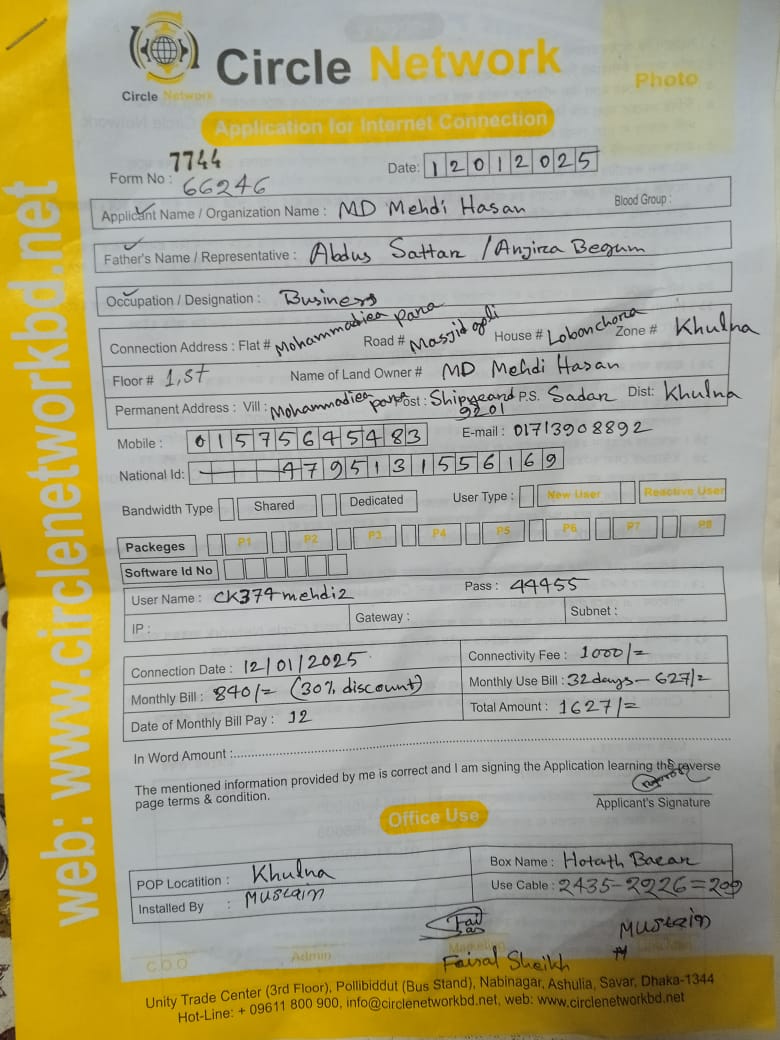 Circle Network
Circle Network
Photo
Application for Internet Connection
Form No : 7744
66246
Date: 12012025
Applicant Name / Organization Name : MD Mehdi Hasan Blood Group :
Father's Name / Representative : Abdus Sattar / Anjira Begum
Occupation / Designation : Business
Connection Address : Flat # Mohammadiea para Road # Masjid goli House # Lobonchora Zone # Khulna
Floor # 1,st Name of Land Owner # MD Mehdi Hasan
Permanent Address : Vill : Mohammadiea para Post : Shipyeard 9201 P.S. Sadar Dist: Khulna
Mobile : 01575645483 E-mail : 01713908892
National Id: 4795131556169
Bandwidth Type Shared Dedicated User Type : New User Reactive User
Packeges P1 P2 P3 P4 P5 P6 P7 P8
Software Id No
User Name : CK374mehdi2 Pass : 44455
IP : Gateway : Subnet :
Connection Date : 12/01/2025 Connectivity Fee : 1000/=
Monthly Bill : 840/= (30% discount) Monthly Use Bill : 32 days - 627/=
Date of Monthly Bill Pay : 12 Total Amount : 1627/=
In Word Amount :
The mentioned information provided by me is correct and I am signing the Application learning the reverse
page terms & condition.
Applicant's Signature
Office Use
POP Locatition : Khulna Box Name : Hotath Bazar
Installed By : Mustain Use Cable : 2435-2226=209
Mustain
C.O.O Admin
Faisal Sheikh
Unity Trade Center (3rd Floor), Pollibiddut (Bus Stand), Nabinagar, Ashulia, Savar, Dhaka-1344
Hot-Line: + 09611 800 900, info@circlenetworkbd.net, web: www.circlenetworkbd.net
web: www.circlenetworkbd.net